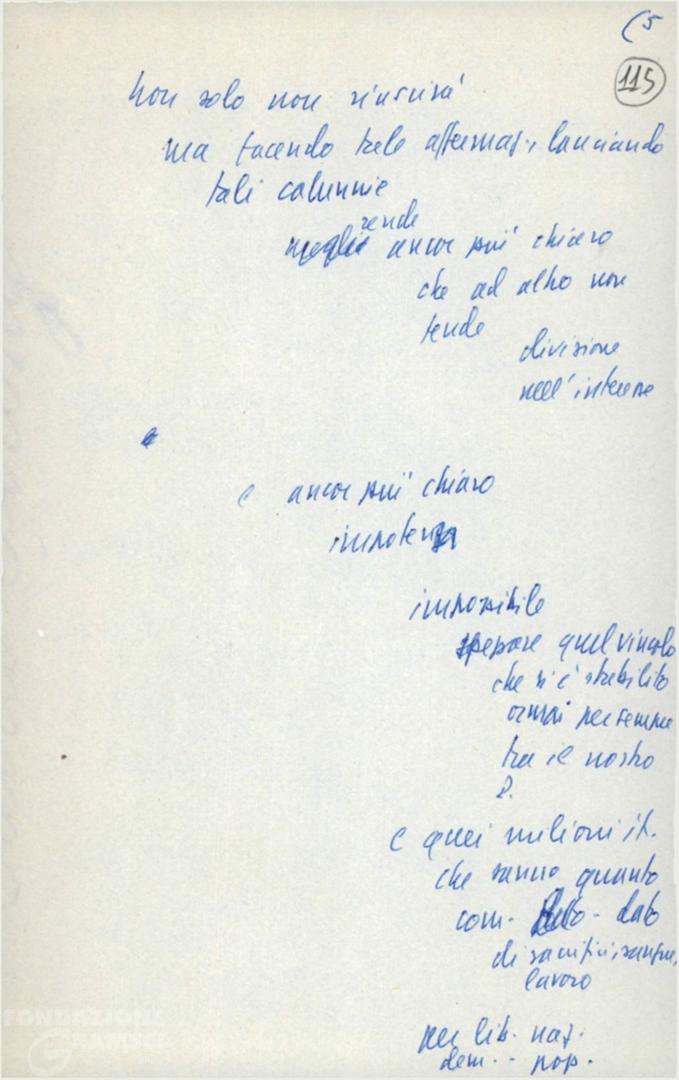 (5
115
non solo non riuscirà
ma facendo tale affermaz., lanciando
tali calunnie
rende
ancor più chiaro
che ad altro non
tende
divisione
nell'interesse
e ancor più chiaro
impotenza
impossibile
spezzare quel vincolo
che si è stabilito
ormai per sempre
tra il nostro
P.
e quei milioni it.
che sanno quanto
com. dato
di sacrifici, sangue,
lavoro
per lib. naz.
dem. - pop.
FONDAZIONE
GRAMSCI